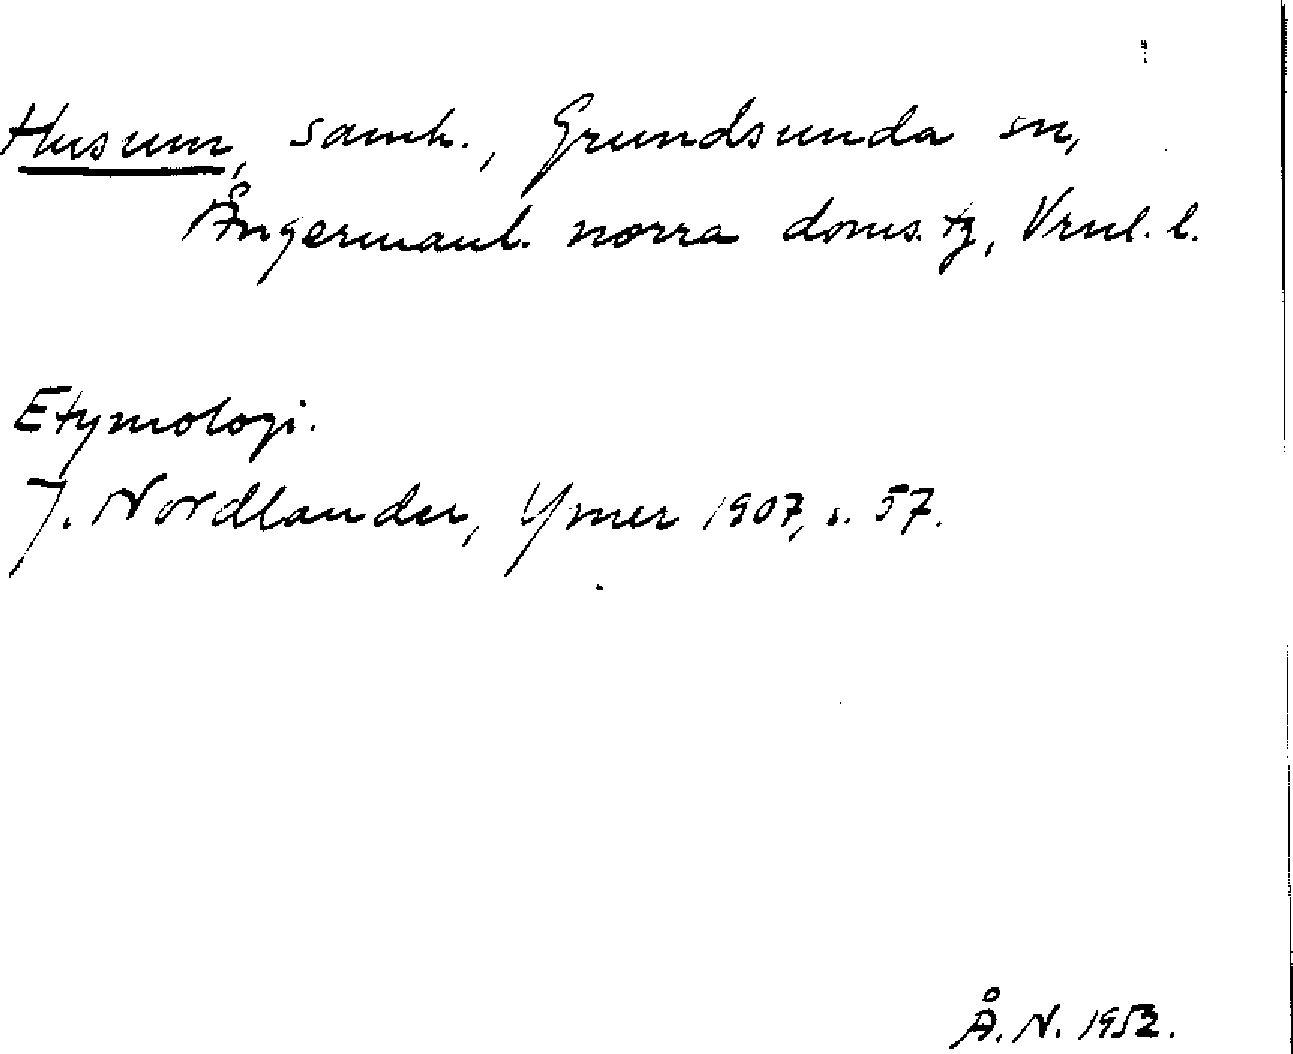 Husum, samh., Grundsunda sn,
Ångermanl. norra doms. tg, Vrnl. l.
Etymologi.
J. Nordlander, Ymer 1907, s. 57.
Å. N. 1952.